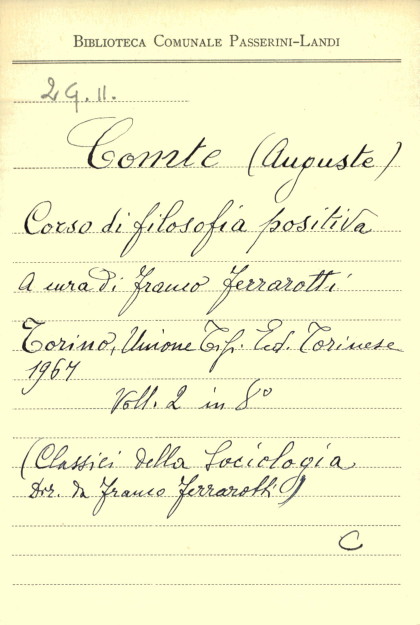 BIBLIOTECA COMUNALE PASSERINI-LANDI
2 G. 11.
Comte (Auguste)
Corso di filosofia positiva
A cura di Franco Ferrarotti
Torino, Unione Tip. Ed. Torinese
1967
Voll. 2 in 8°
(Classici della Sociologia
Dir. da Franco Ferrarotti)
C